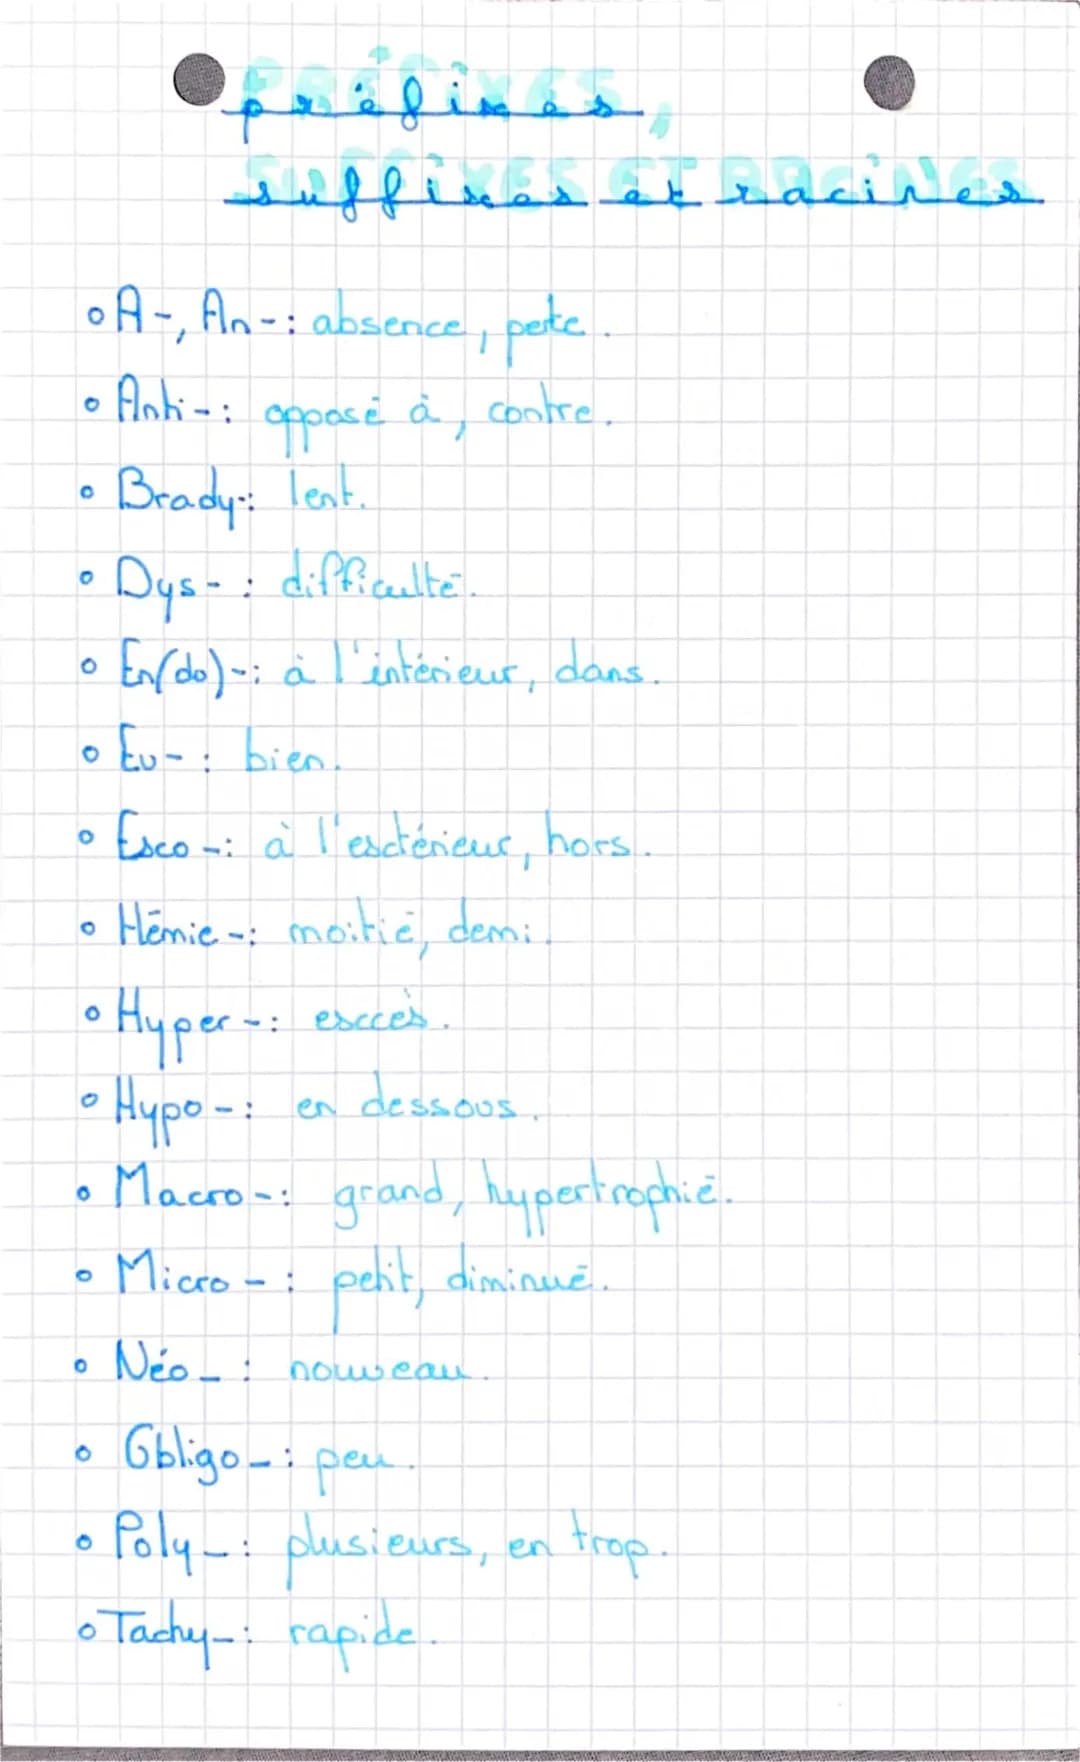 PRÉFIXES,
préfixes,
SUFFIXES ET RACINES
suffixes et racines
○ A-, An-: absence, perte.
○ Anti-: opposé à, contre.
○ Brady-: lent.
○ Dys-: difficulté.
○ En(do)-: à l'intérieur, dans.
○ Eu-: bien.
○ Exo-: à l'extérieur, hors.
○ Hémie-: moitié, demi.
○ Hyper-: excès.
○ Hypo-: en dessous.
○ Macro-: grand, hypertrophié.
○ Micro-: petit, diminué.
○ Néo-: nouveau.
○ Obligo-: peu.
○ Poly-: plusieurs, en trop.
○ Tachy-: rapide.